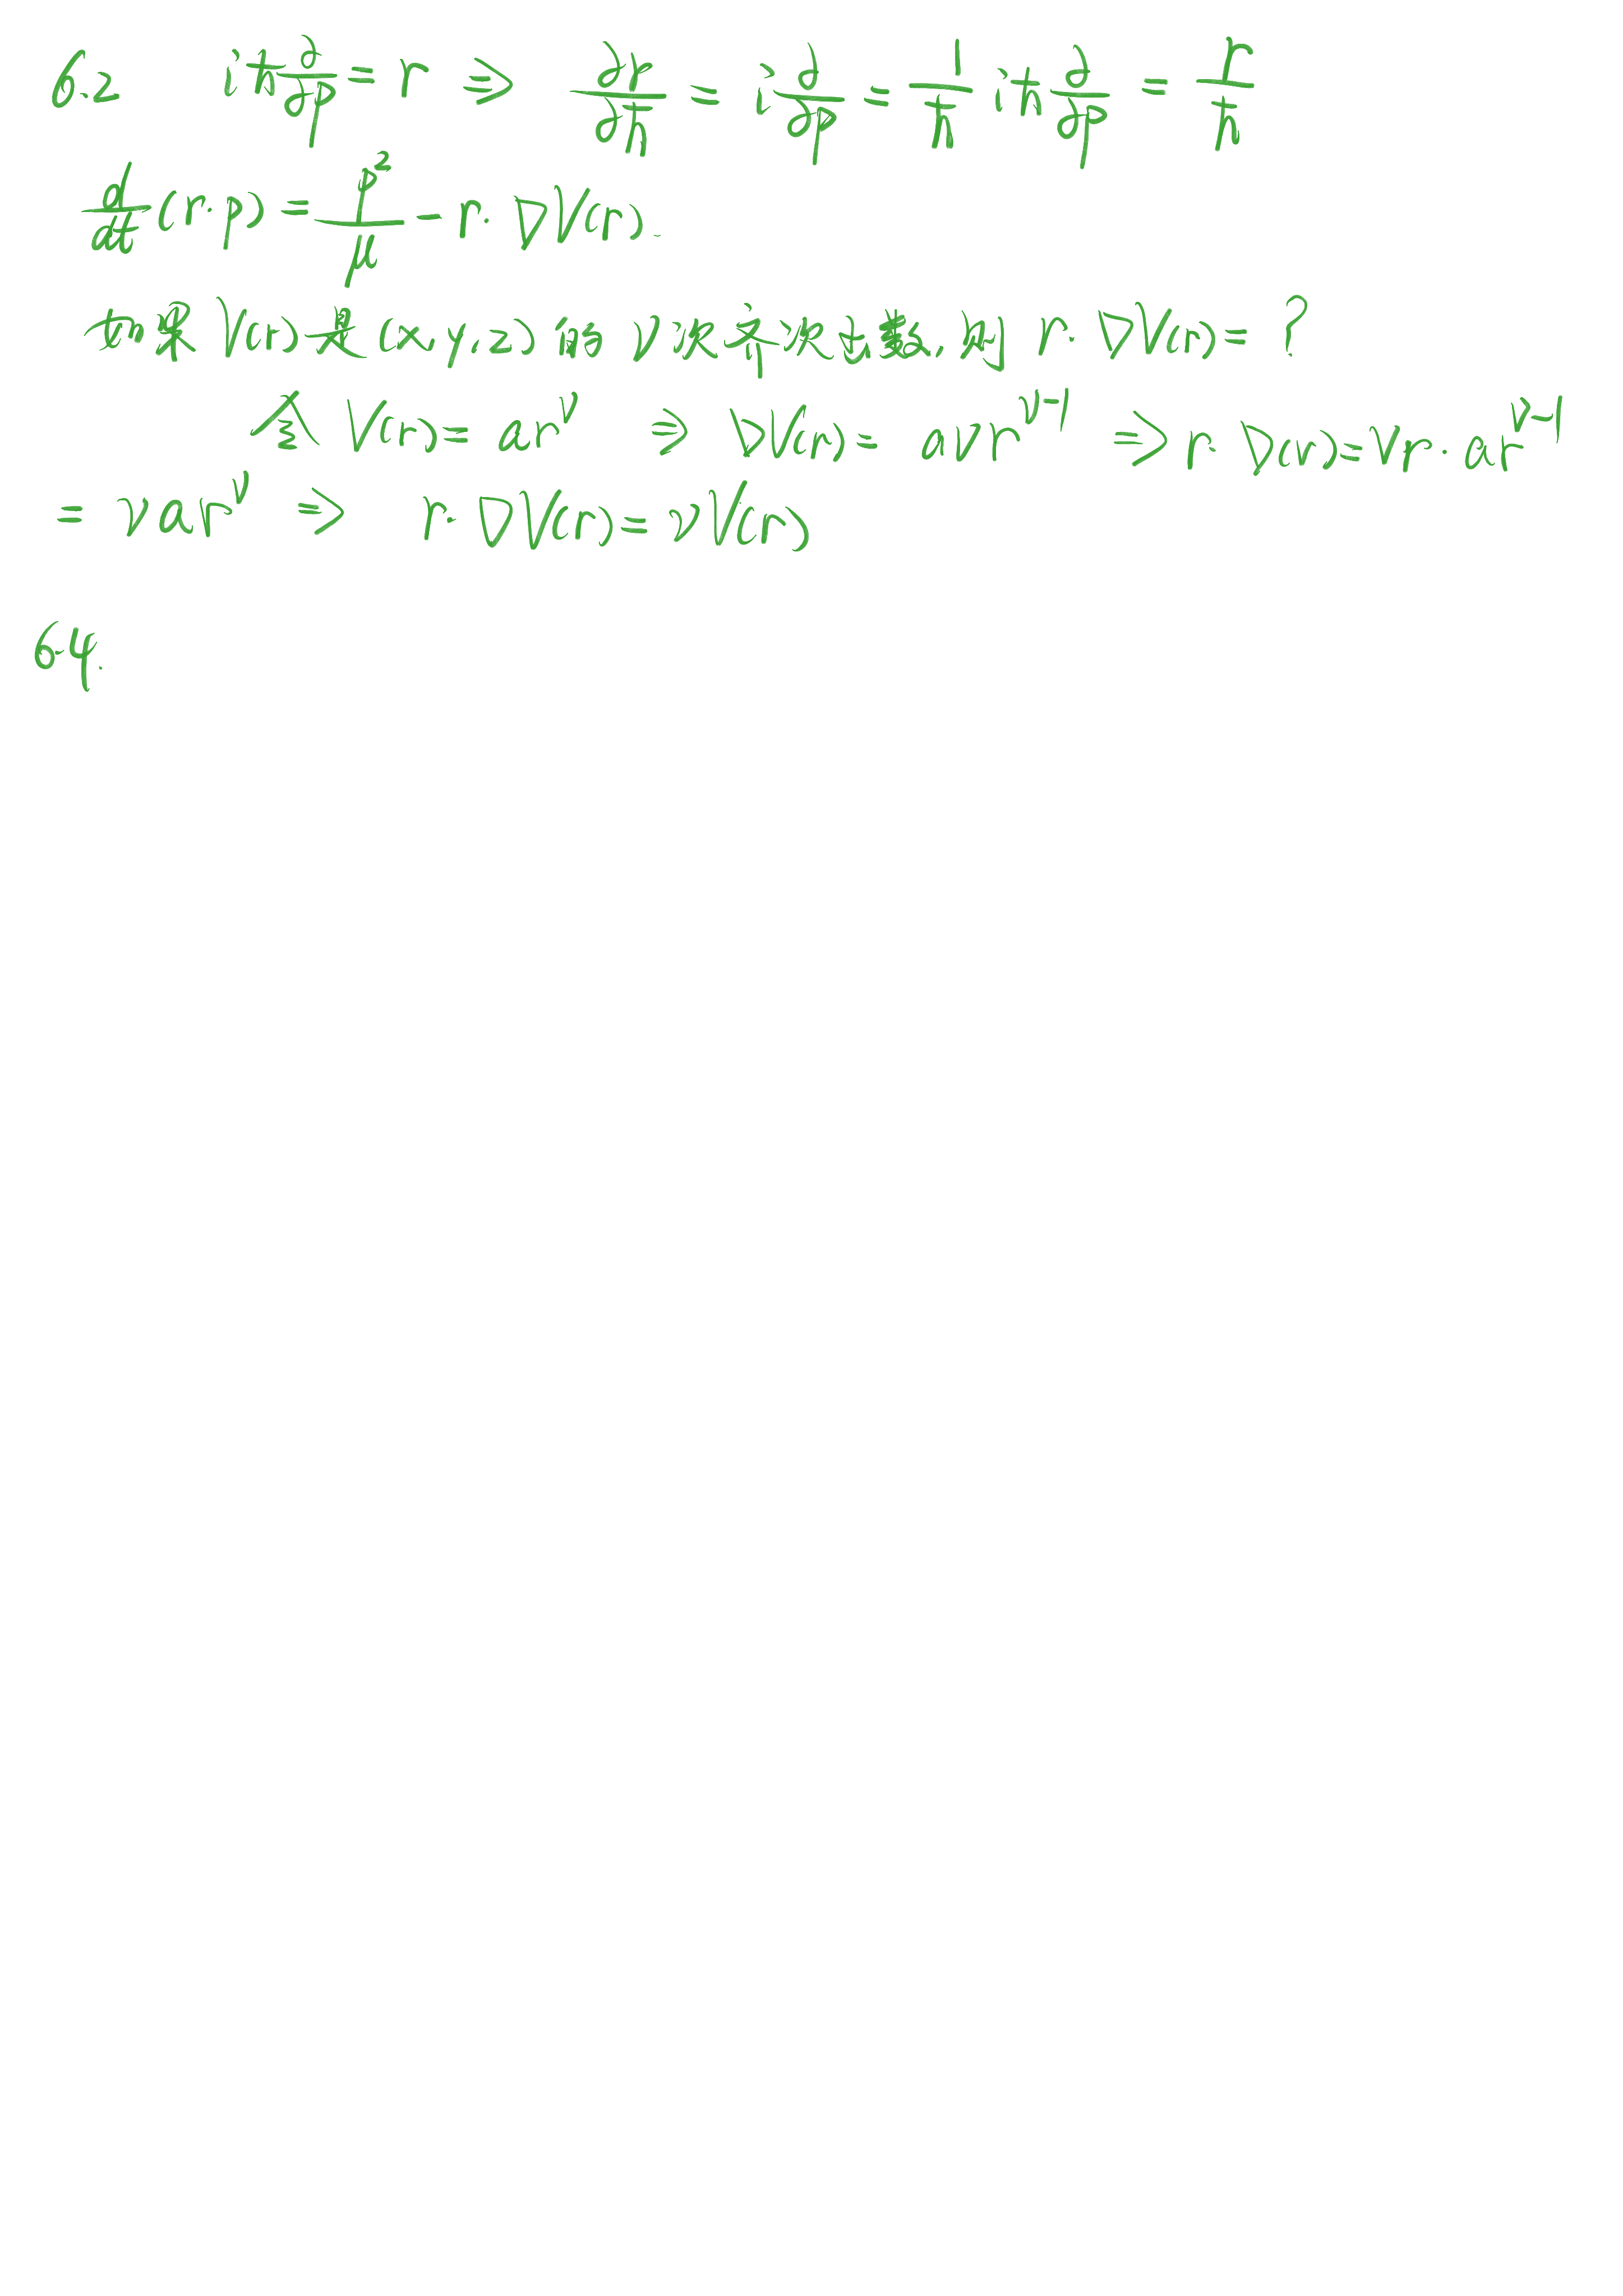 6.2 iħ∂/∂p = r ⇒ ∂h/∂ħ = i∂/∂p = 1/ħ iħ∂/∂p = r/ħ
d/dt (r·p) = p²/μ - r·∇V(r).
如果V(r)是(x,y,z)的ν次齐次函数,则r·∇V(r)=?
令 V(r)= ar^ν ⇒ ∇V(r)= aνr^(ν-1) ⇒ r·∇(r)=νr·ar^(ν-1)
= νar^ν ⇒ r·∇V(r)=νV(r)
6.4.